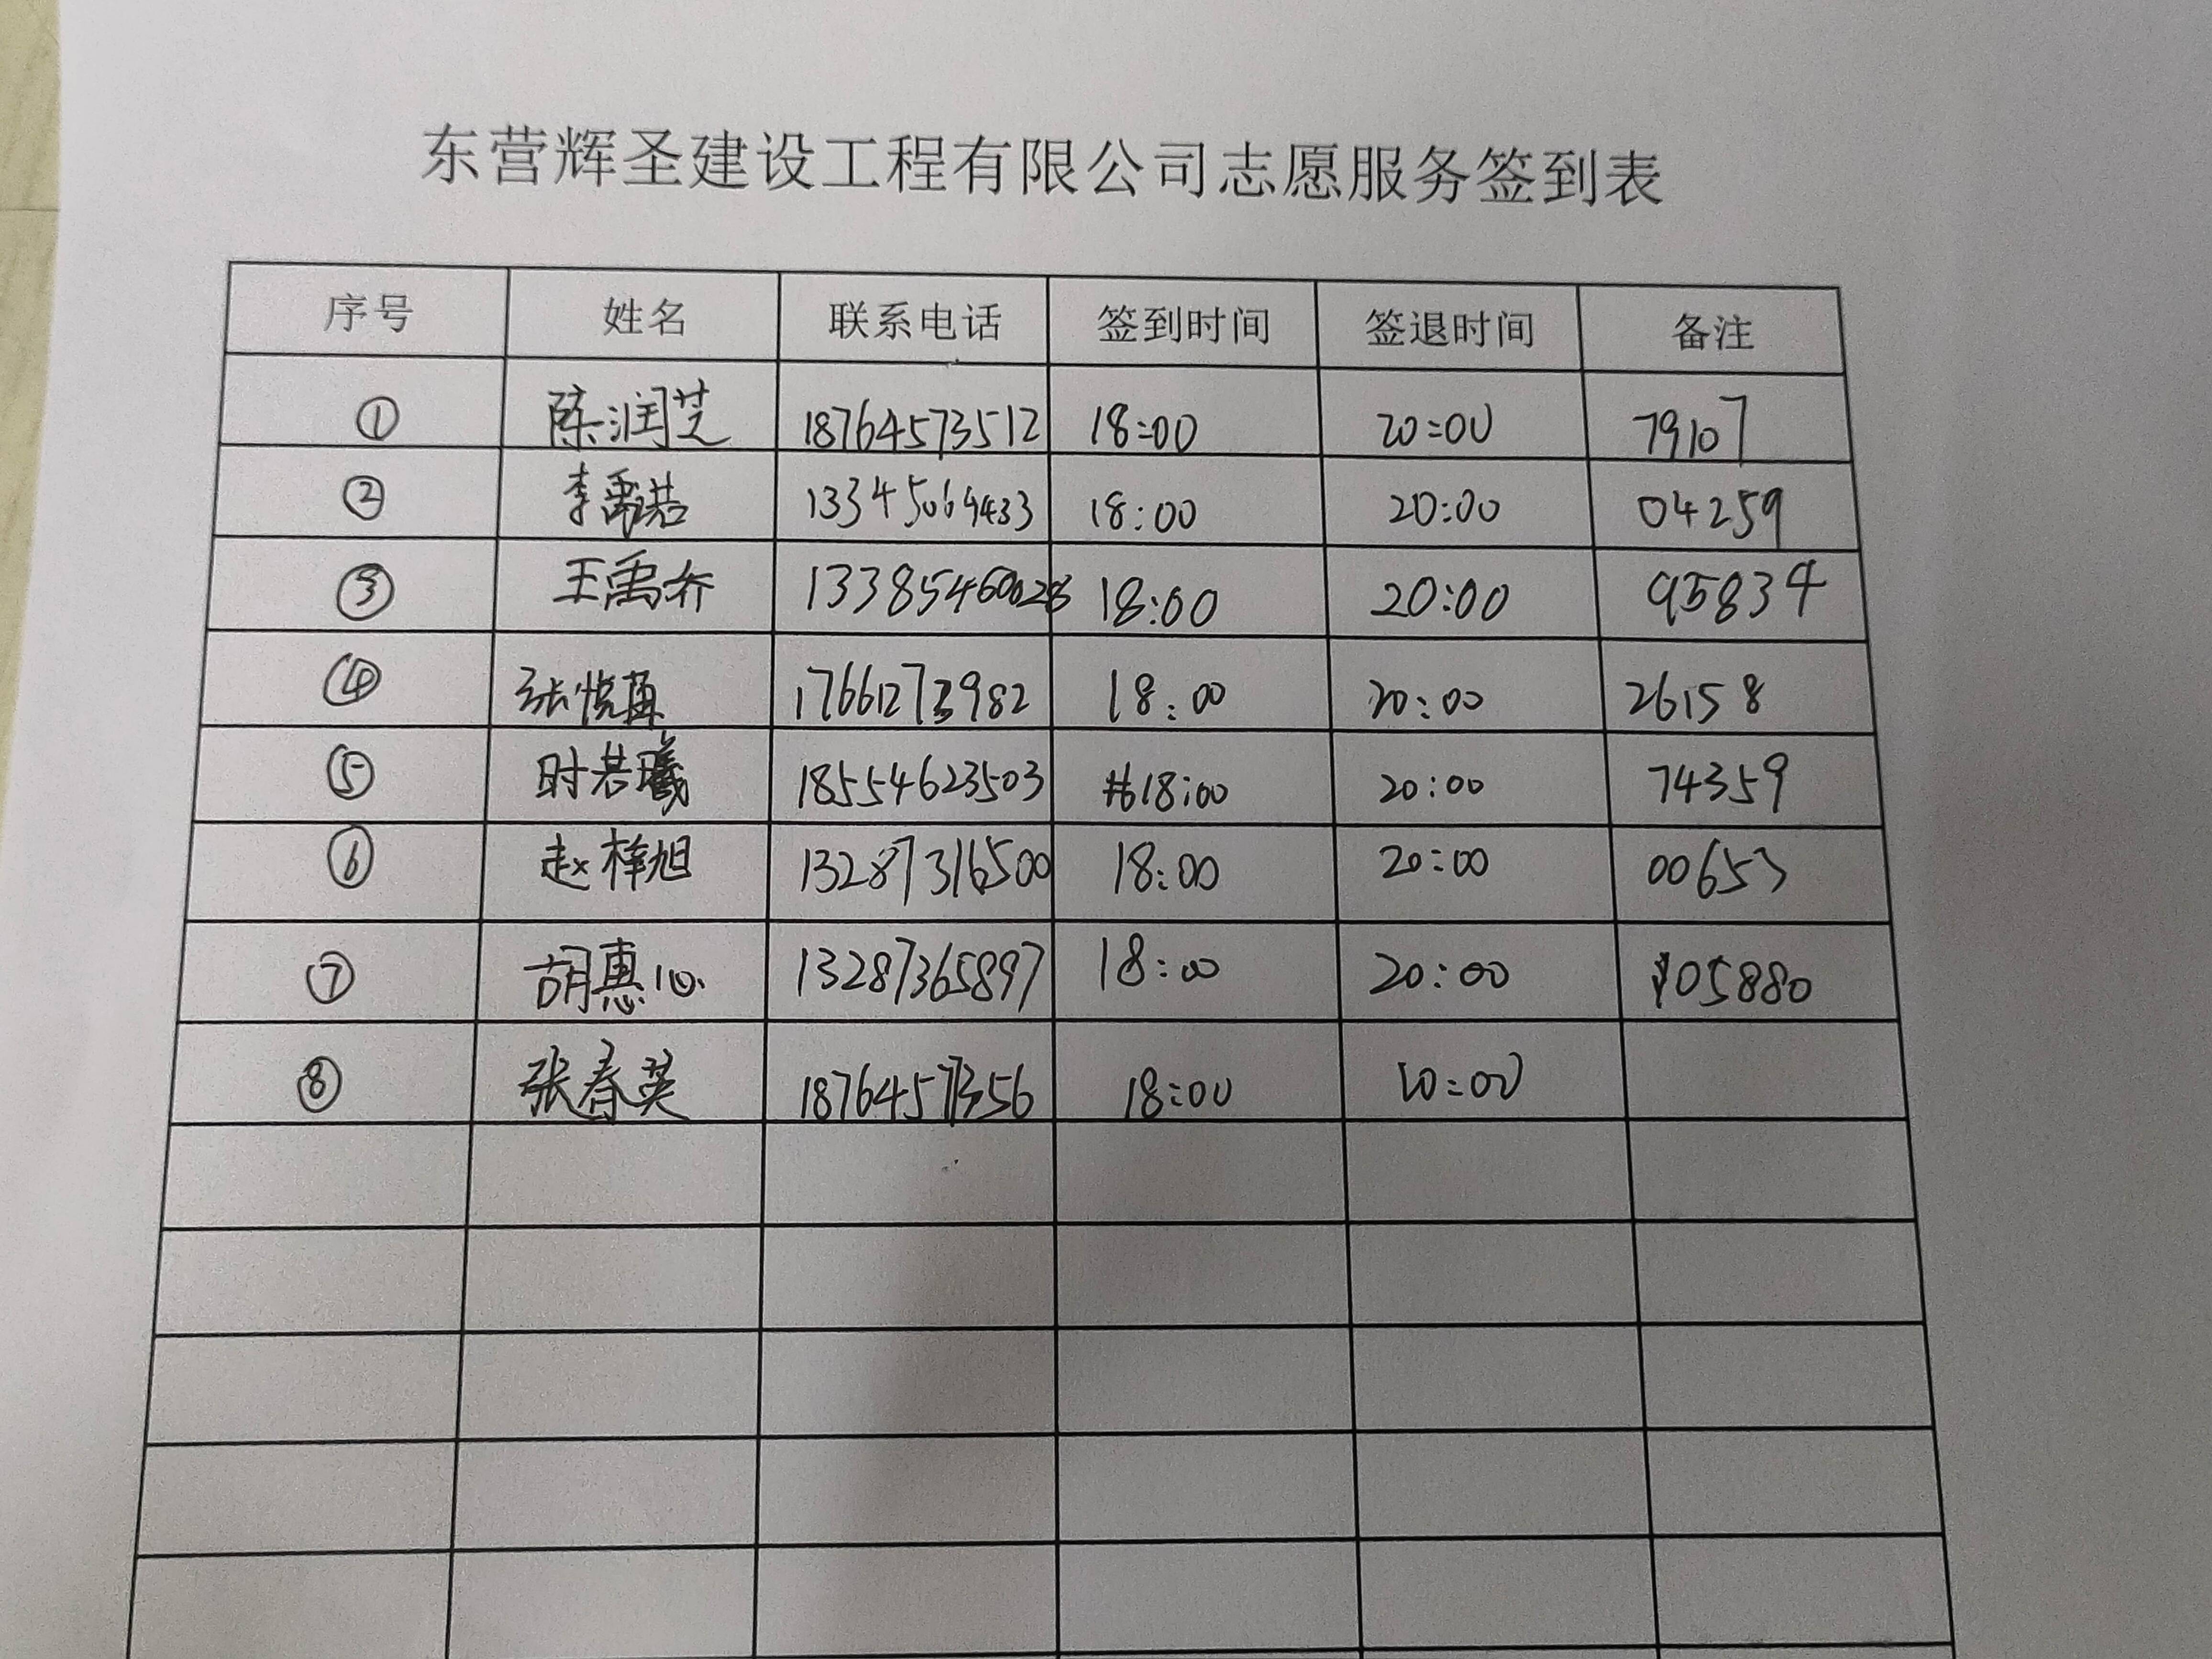 东营辉圣建设工程有限公司志愿服务签到表
序号 姓名 联系电话 签到时间 签退时间 备注
① 陈润芝 18764573512 18:00 20:00 79107
② 李禹诺 13345064433 18:00 20:00 04259
③ 王禹乔 18:00 20:00 95834
④ 张悦 17661273982 18:00 20:00 26158
⑤ 时若曦 18554623503 18:00 20:00 74359
⑥ 赵梓旭 13287316500 18:00 20:00 00653
⑦ 胡惠心 13287365897 18:00 20:00 05880
⑧ 张春英 18:00 20:00